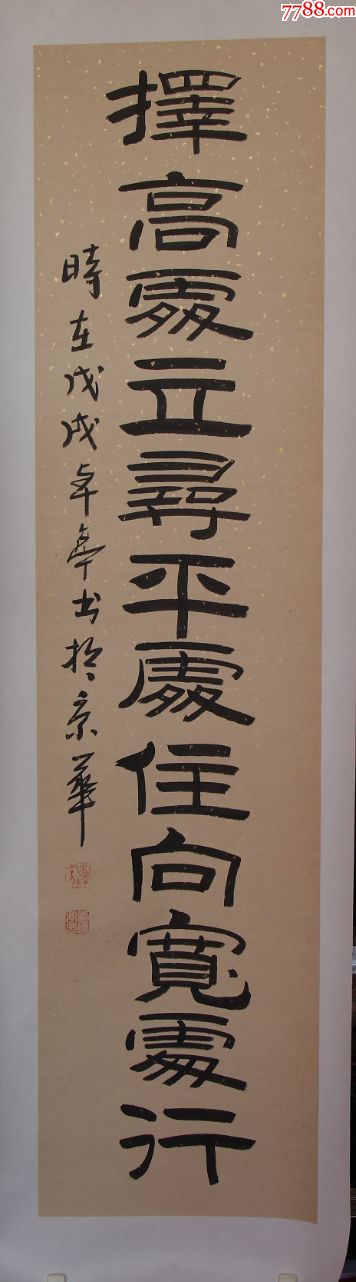 7788.com
擇高處立尋平處住向寬處行
時在戊戌卓亭書於京華